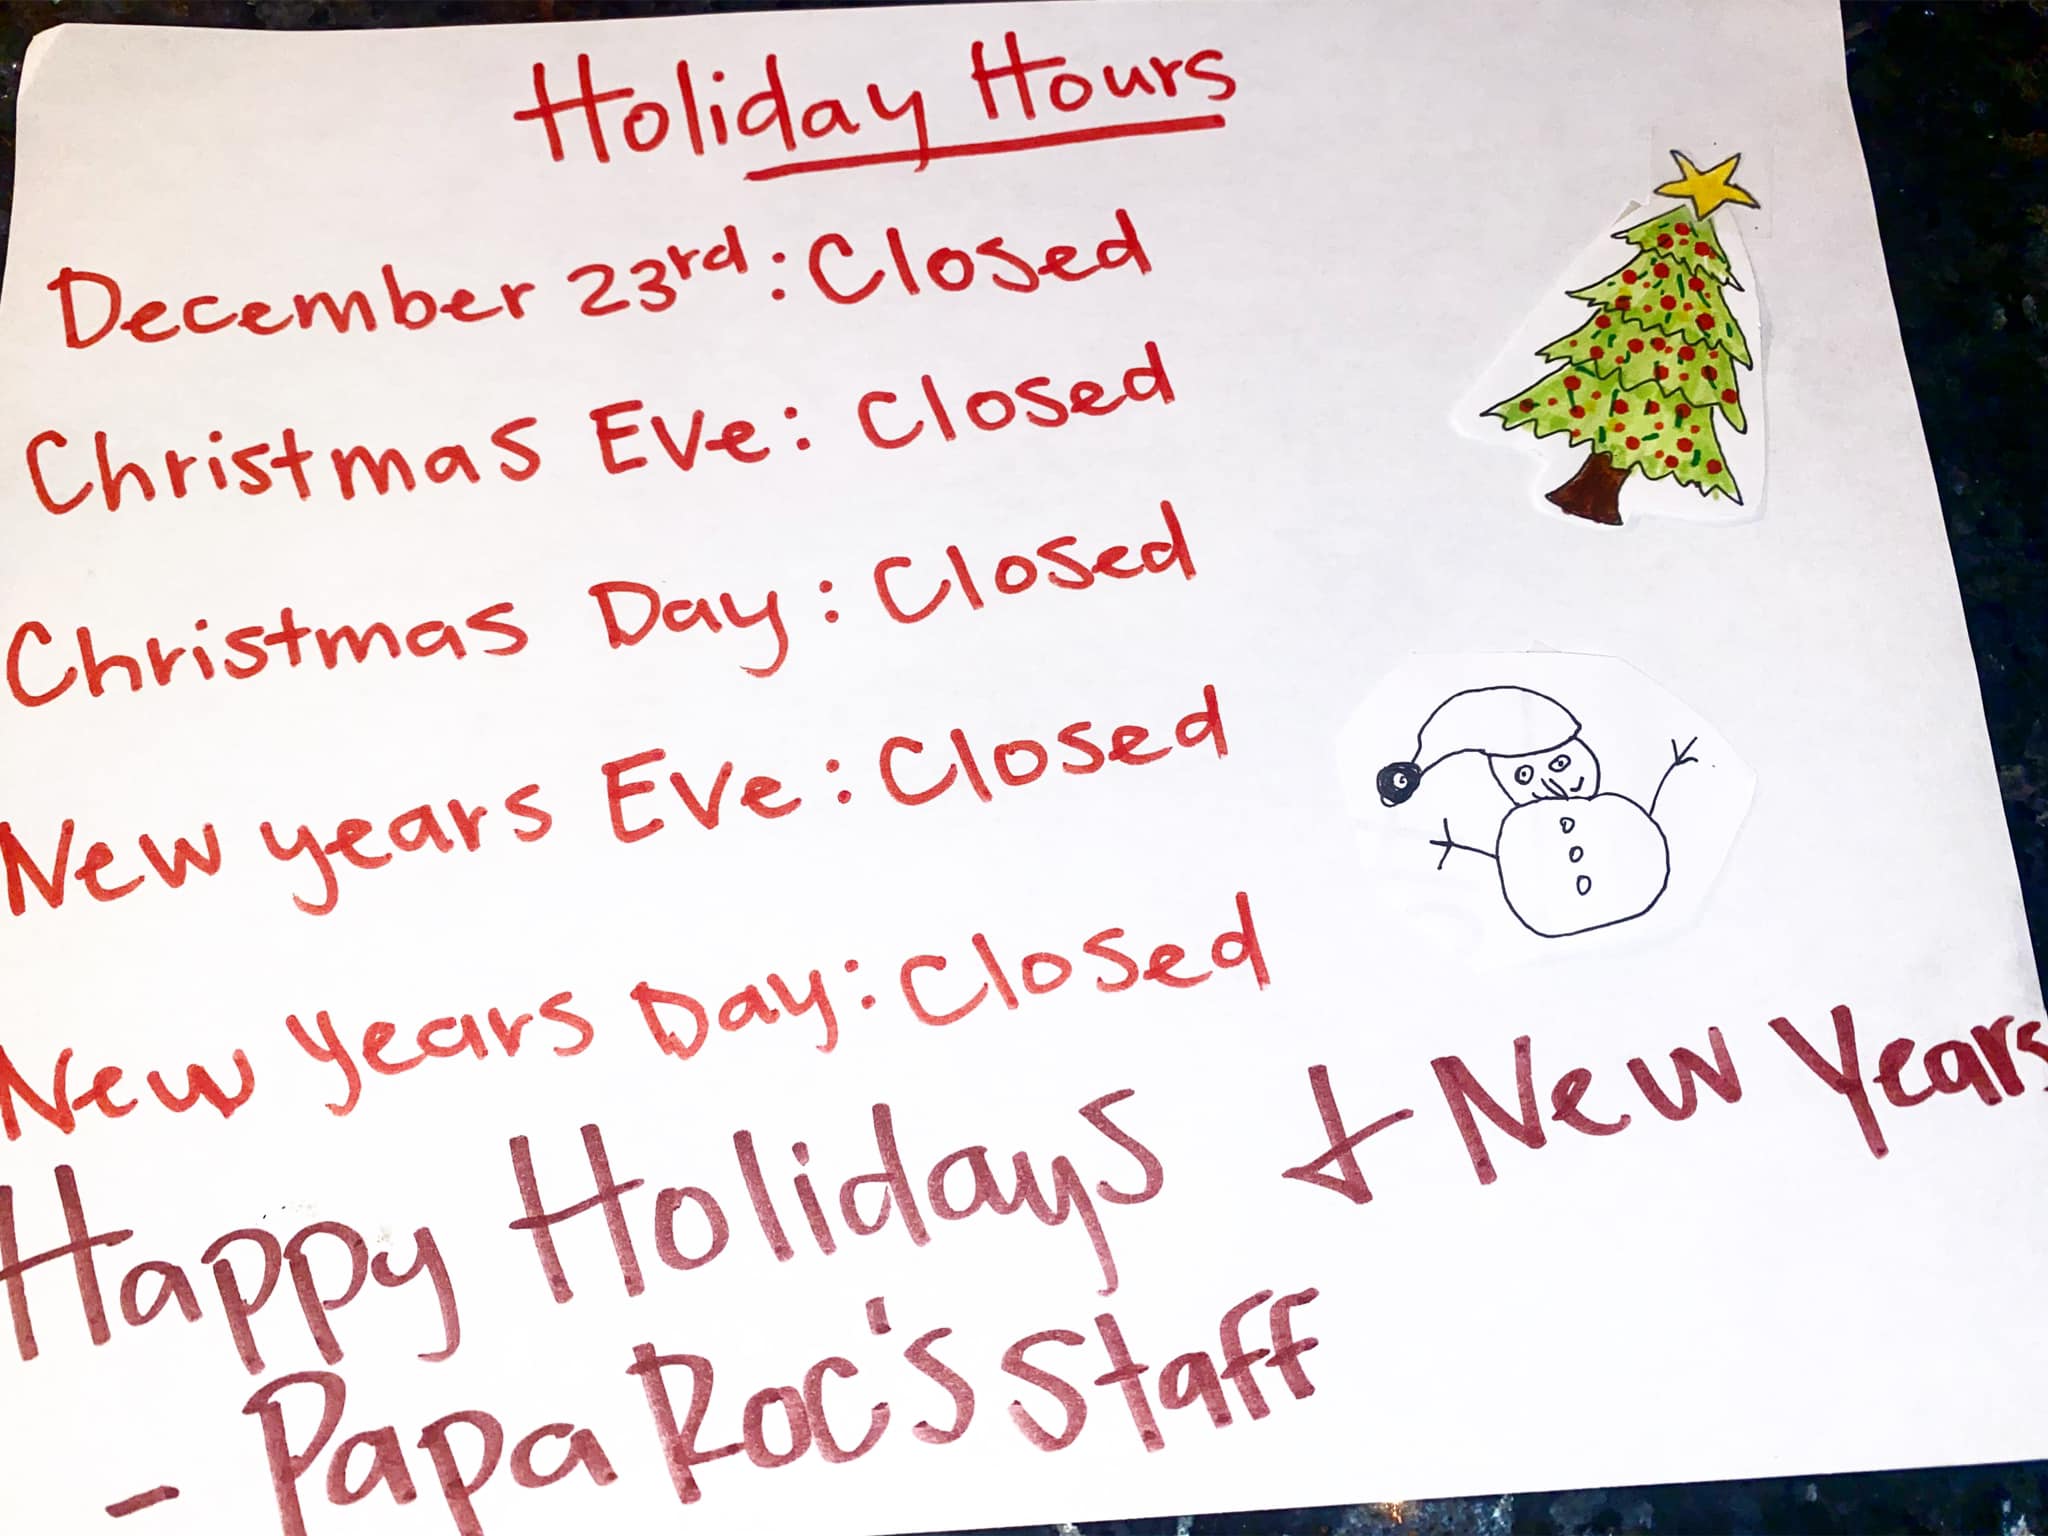 Holiday Hours
December 23rd: Closed
Christmas Eve: Closed
Christmas Day: Closed
New years Eve: Closed
New Years Day: Closed
Happy Holidays + New Years
- Papa Roc's Staff